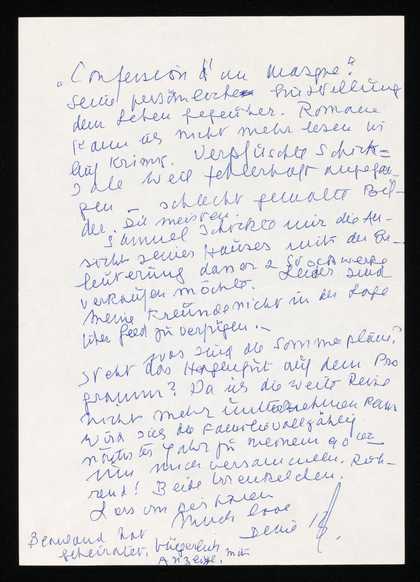 "Confession d'un Masque".
seine persönliche Einstellung
dem Leben gegenüber. Romane
kann ich nicht mehr lesen bis
auf Krimis. Verpfuschte Schick=
sale weil fehlerhaft angegan-
gen – schlecht gemalte Bil-
der. Die meisten.
Samuel schickte mir die An-
sicht seines Hauses mit der Er-
läuterung dass er 2 Stockwerke
verkaufen möchte. Leider sind
meine Freunde nicht in der Lage
über Geld zu verfügen. –
Was sind die Sommerpläne?
Steht das auf dem Pro
gramm? Da ich die weite Reise
nicht mehr unternehmen kann
wird sich die Familie vollzählig
nächstes Jahr zu meinem 90er
um mich versammeln. Rüh-
rend! Beide Urenkelchen.
Lass von Dir hören
Much love
hat
geheiratet, bürgerlich mit
Anzeige.